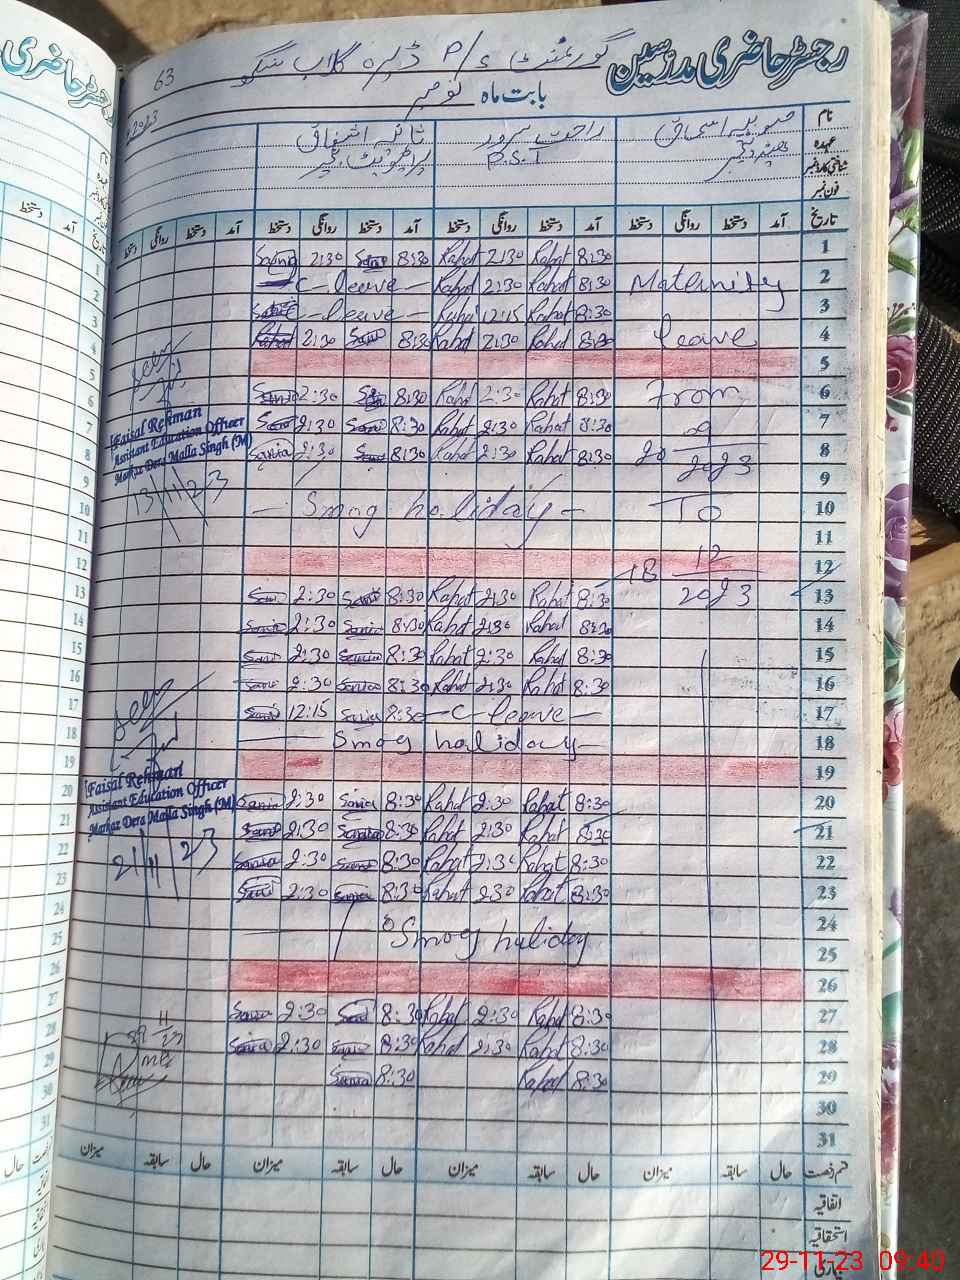 رجسٹر حاضری مدرسین گورنمنٹ P/S ڈیرہ گلاب سنگھ
63
بابت ماہ نومبر
2023
نام صوبیہ اسحاق راحت سرور ثانیہ اشفاق
عہدہ ہیڈ ٹیچر P.S.T
شناختی کارڈ نمبر
فون نمبر
تاریخ آمد دستخط روانگی دستخط آمد دستخط روانگی دستخط آمد دستخط روانگی دستخط آمد دستخط روانگی دستخط
1 8:30 Rahat 2:30 Rahat 8:30 Sania 2:30 Sania
2 Maternity 8:30 Rahat 2:30 Rahat - C - leave -
3 8:30 Rahat 12:15 Rahat - C - leave -
4 leave 8:30 Rahat 2:30 Rahat 8:30 Sania 2:30
5
6 From 8:30 Rahat 2:30 Rahat 8:30 Sania 2:30 Sania
7 8:30 Rahat 2:30 Rahat 8:30 Sania 2:30 Sania
8 20 9 2023 8:30 Rahat 2:30 Rahat 8:30 Sania 2:30 Sania
9
10 To - Smog holiday -
11
12 18 12 2023
13 8:30 Rahat 2:30 Rahat 8:30 Sania 2:30 Sania
14 8:30 Rahat 2:30 Rahat 8:30 Sania 2:30 Sania
15 8:30 Rahat 2:30 Rahat 8:30 Sania 2:30 Sania
16 8:30 Rahat 2:30 Rahat 8:30 Sania 2:30 Sania
17 - C - leave - 8:30 Sania 12:15 Sania
18 Smog holiday -
19
20 8:30 Rahat 2:30 Rahat 8:30 Sania 2:30 Sania
21 8:30 Rahat 2:30 Rahat 8:30 Sania 2:30 Sania
22 8:30 Rahat 2:30 Rahat 8:30 Sania 2:30 Sania
23 8:30 Rahat 2:30 Rahat 8:30 Sania 2:30 Sania
24 Smog holiday
25
26
27 8:30 Rahat 2:30 Rahat 8:30 Sania 2:30 Sania
28 8:30 Rahat 2:30 Rahat 8:30 Sania 2:30 Sania
29 8:30 Rahat 8:30 Sania
30
31
Seen
Faisal Rehman
Assistant Education Officer
Markaz Dera Malla Singh (M)
13/11/23
Seen
Faisal Rehman
Assistant Education Officer
Markaz Dera Malla Singh (M)
21/11/23
قسم رخصت حال سابقہ میزان حال سابقہ میزان حال سابقہ میزان حال سابقہ میزان
اتفاقیہ
استحقاقیہ
بیماری
29-11-23 09:40